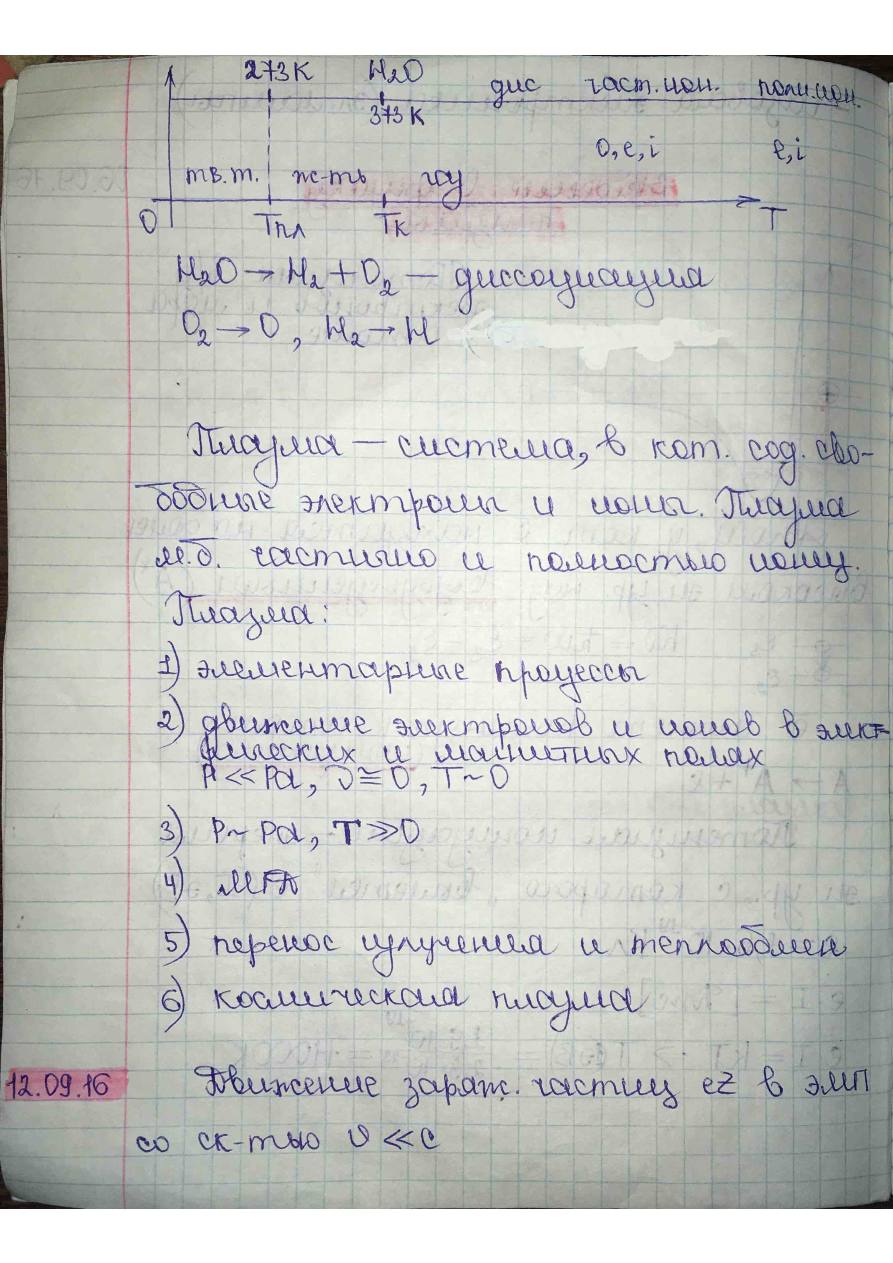 273К H₂O дис част.ион. полн.ион.
373 К
0,e,i e,i
тв.т. ж-ть газ
0 Tпл Tк T
H₂O → H₂ + O₂ — диссоциация
O₂ → O , H₂ → H
Плазма — система, в кот. сод. сво-
бодные электроны и ионы. Плазма
м.б. частично и полностью иониз.
Плазма:
1) элементарные процессы
2) движение электронов и ионов в элект-
рических и магнитных полях
P ≪ Pa, ν ≅ 0, T ~ 0
3) P ~ Pa, T ≫ 0
4) МГД
5) перенос излучения и теплообмен
6) космическая плазма
12.09.16 Движение заряж. частиц eZ в ЭМП
со ск-тью υ ≪ c